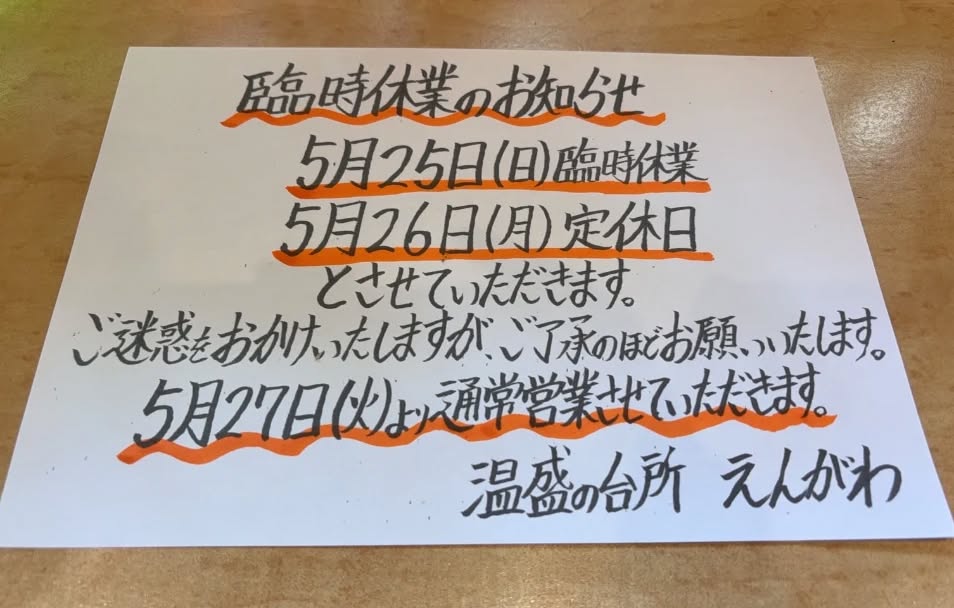 臨時休業のお知らせ
5月25日(日)臨時休業
5月26日(月)定休日
とさせていただきます。
ご迷惑をおかけいたしますが、ご了承のほどお願いいたします。
5月27日(火)より通常営業させていただきます。
温盛の台所 えんがわ